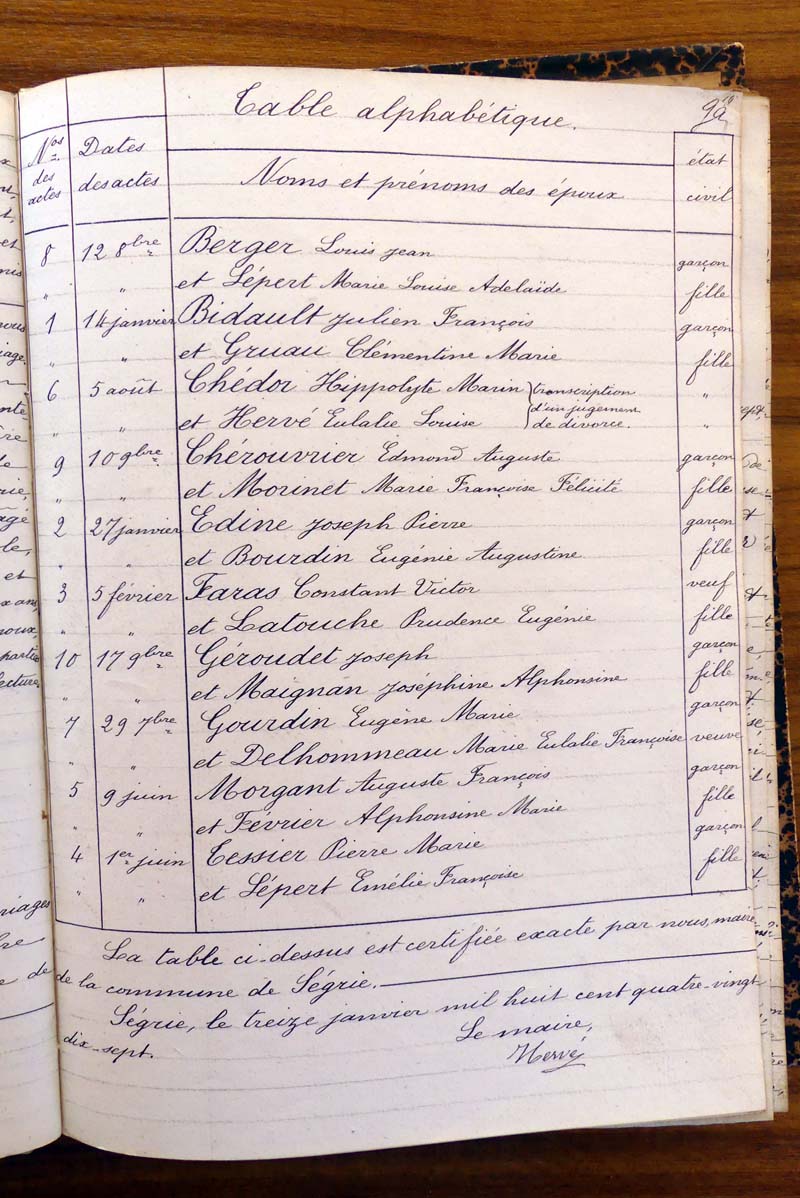 Table alphabétique.
Nos des actes
Dates des actes
Noms et prénoms des époux
état civil
8 12 8bre Berger Louis Jean garçon
" " et Lépert Marie Louise Adelaïde fille
1 14 janvier Bidault Julien François garçon
" " et Gruau Clémentine Marie fille
6 5 août Chédor Hippolyte Marin transcription "
d'un jugement
" " et Hervé Eulalie Louise de divorce. "
9 10 9bre Chérouvrier Edmond Auguste garçon
" " et Morinet Marie Françoise Félicité fille
2 27 janvier Edine Joseph Pierre garçon
" " et Bourdin Eugénie Augustine fille
3 5 février Faras Constant Victor veuf
" " et Latouche Prudence Eugénie fille
10 17 9bre Géroudet Joseph garçon
" " et Maignan Joséphine Alphonsine fille
7 29 7bre Gourdin Eugène Marie garçon
" " et Delhommeau Marie Eulalie Françoise veuve
5 9 juin Morgant Auguste François garçon
" " et Février Alphonsine Marie fille
4 1er juin Tessier Pierre Marie garçon
" " et Lépert Emélie Françoise fille
La table ci-dessus est certifiée exacte par nous, maire
de la commune de Ségrie.
Ségrie, le treize janvier mil huit cent quatre-vingt
dix-sept.
Le maire,
Hervé